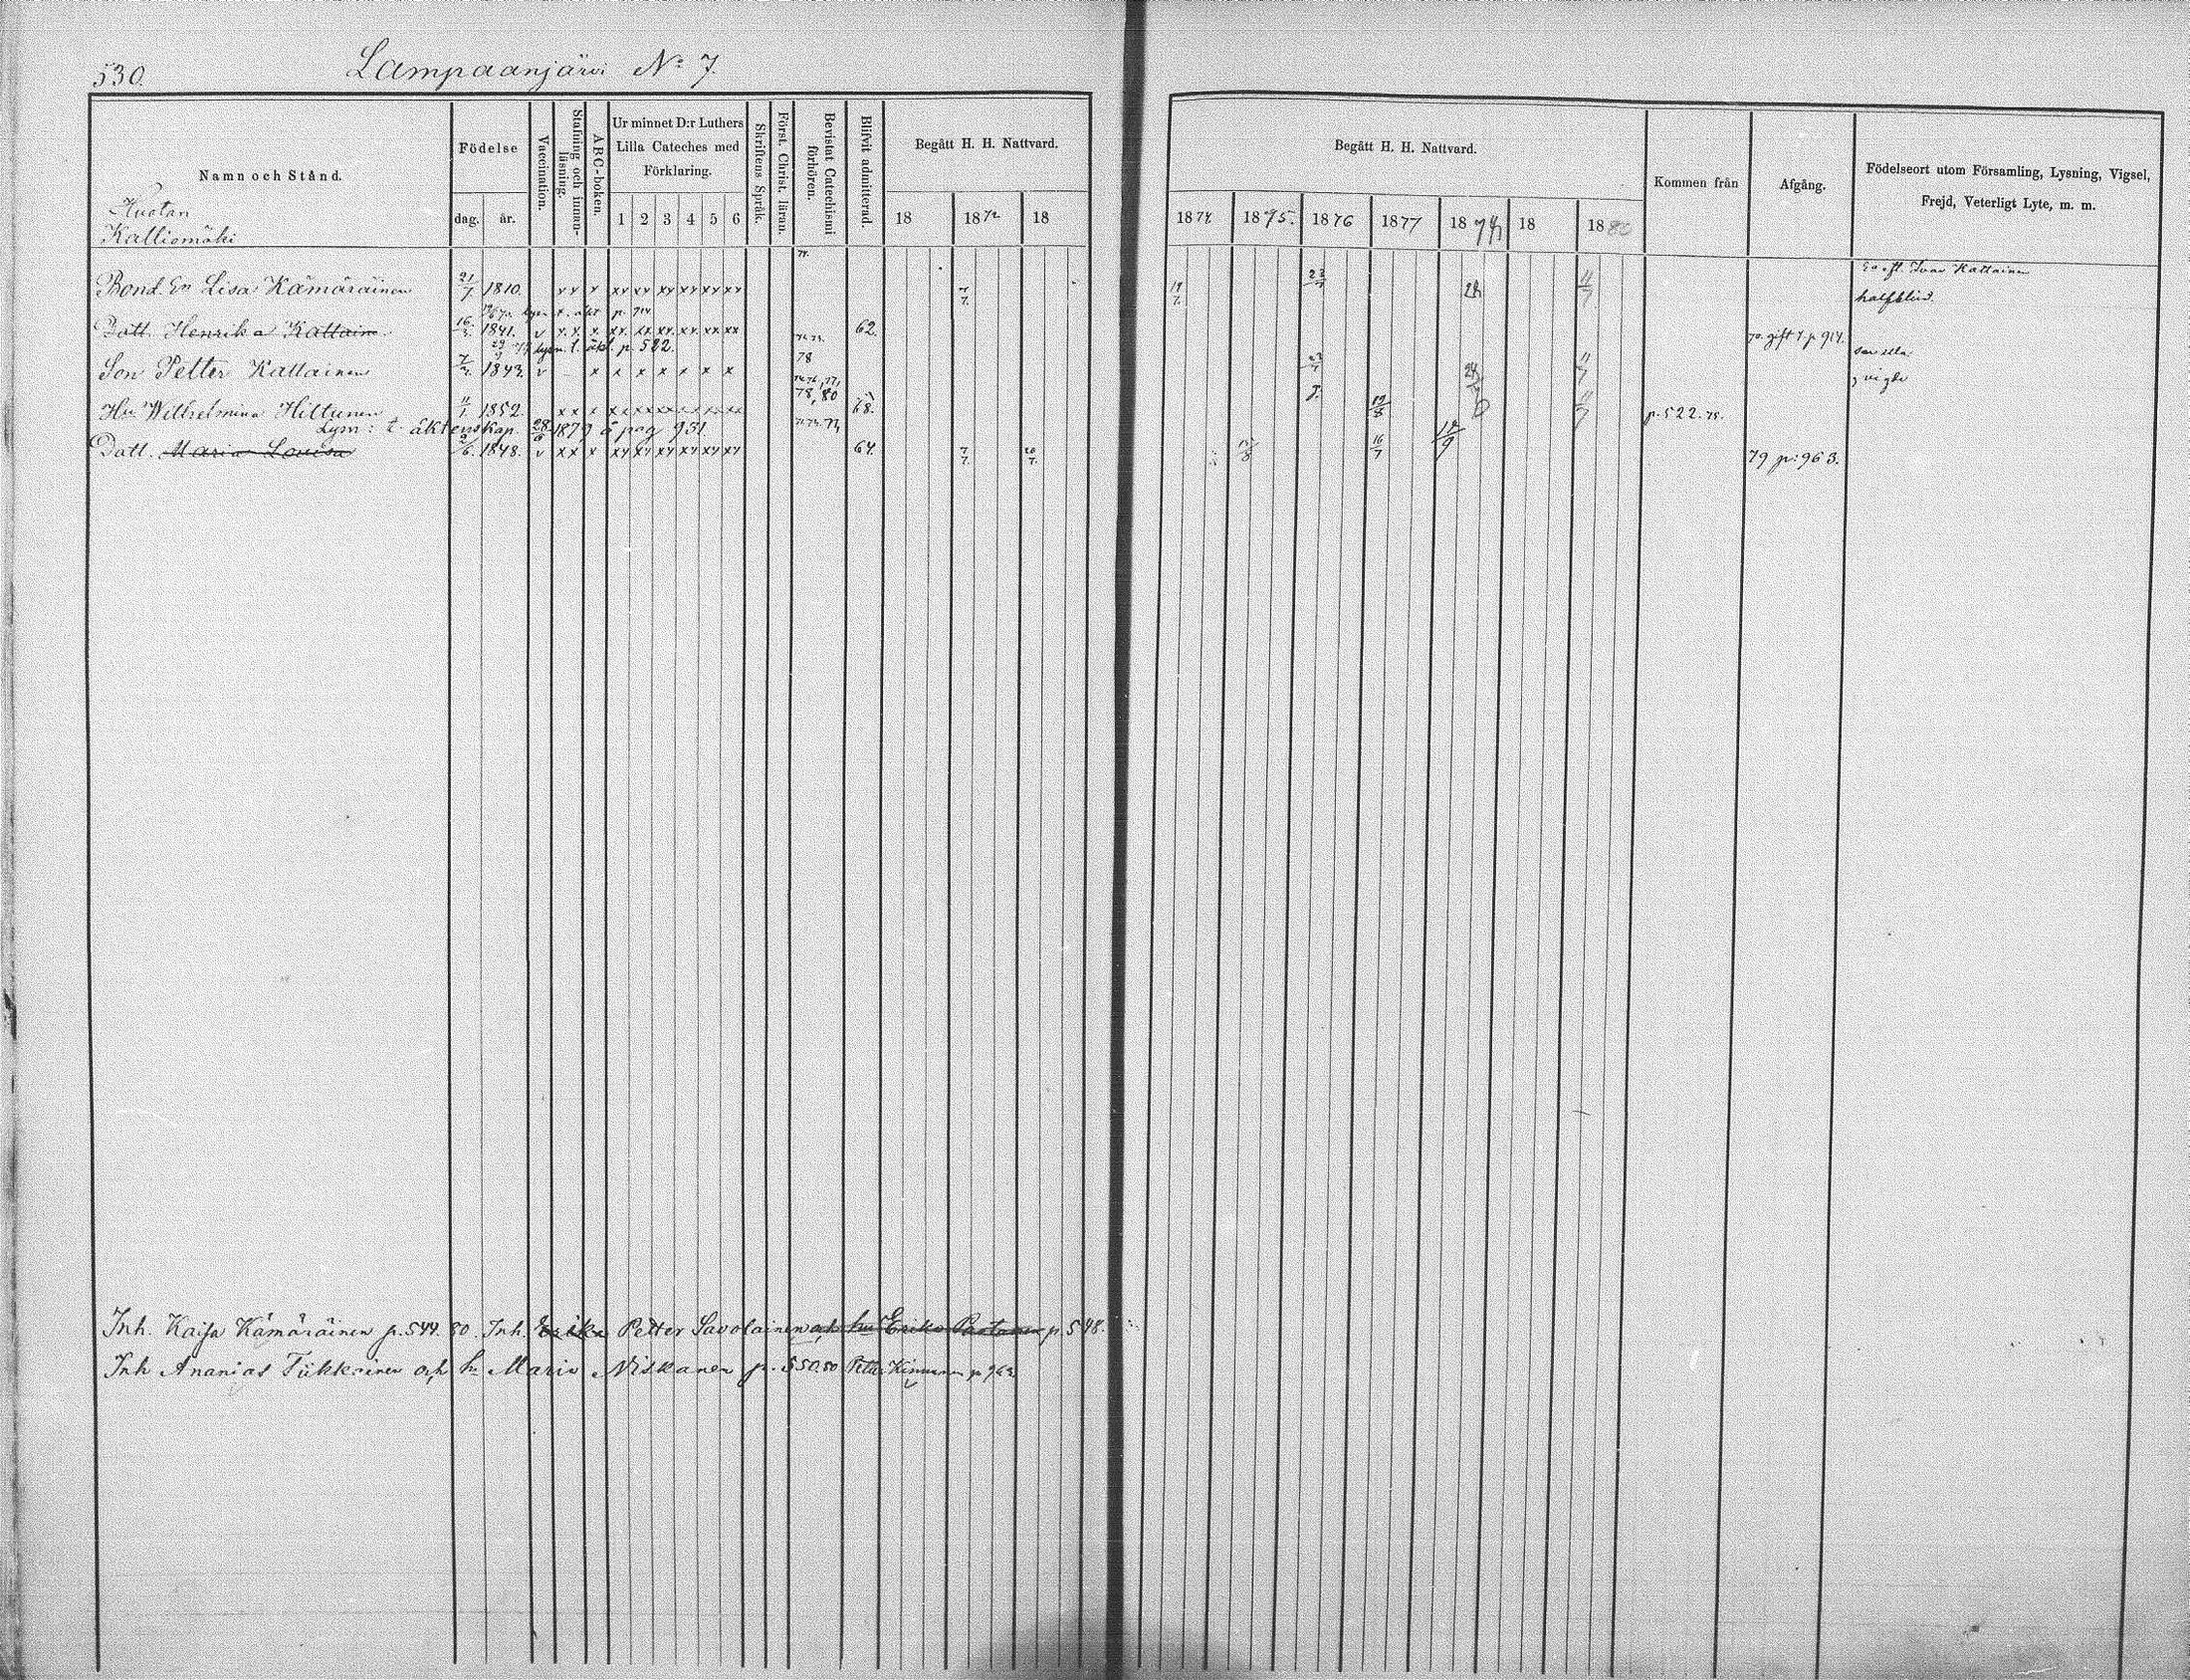 530. Lampaanjärvi No 7.
Namn och Stånd.
Födelse
dag.
år.
Vaccination.
Stafning och innanläsning.
ABC-boken.
Ur minnet D:r Luthers
Lilla Cateches med
Förklaring.
1 2 3 4 5 6
Skriftens Språk.
Först. Christ. läran.
Bevistat Catechismi förhören.
Blifvit admitterad.
Begått H. H. Nattvard.
18 1872 18
Begått H. H. Nattvard.
1874 1875. 1876 1877 18 18 1880
Kommen från
Afgång.
Födelseort utom Församling, Lysning, Vigsel,
Frejd, Veterligt Lyte, m. m.
Kuotan
Kalliomäki
Ivar Kattainen
Bond. En Lisa Kämäräinen 21/7 1810. xx x xx xx xx xx xx xx 7/7. 19/7. 23/7 11/7 halfblind.
lysn. t. äkt p. 914
Dott. Henrika Kattain 16/2. 1841. v x.x. x. xx. xx. xx. xx. xx xx 62. 70. gift t. p 914.
lysn. t. äkt. p. 522.
Son Petter Kattainen 7/2. 1843. v x x x x x x x 78 23/7 11/7 vigde
78, 80
Hu Wilhelmina Hiltunen 11/1. 1852. xx x xx xx xx xx xx xx 68. 19/8 11/7 p. 522. 75.
Lysn: t. äktenskap. 28/9 1879 å pag 931
Dott. Maria Lovisa 2/6. 1848. v xx x xx xx xx xx xx xx 64. 7/7. 20/7. 15/8 16/7 14/9 79 p: 963.
Inh. Kaisa Kämäräinen p. 544. 80. Inh. Erika Petter Savolainen och hu Erika Partanen p. 548.
Inh Ananias Tiikkainen och hu Maria Niskanen p. 550. 80 Petter Kinnunen p 963